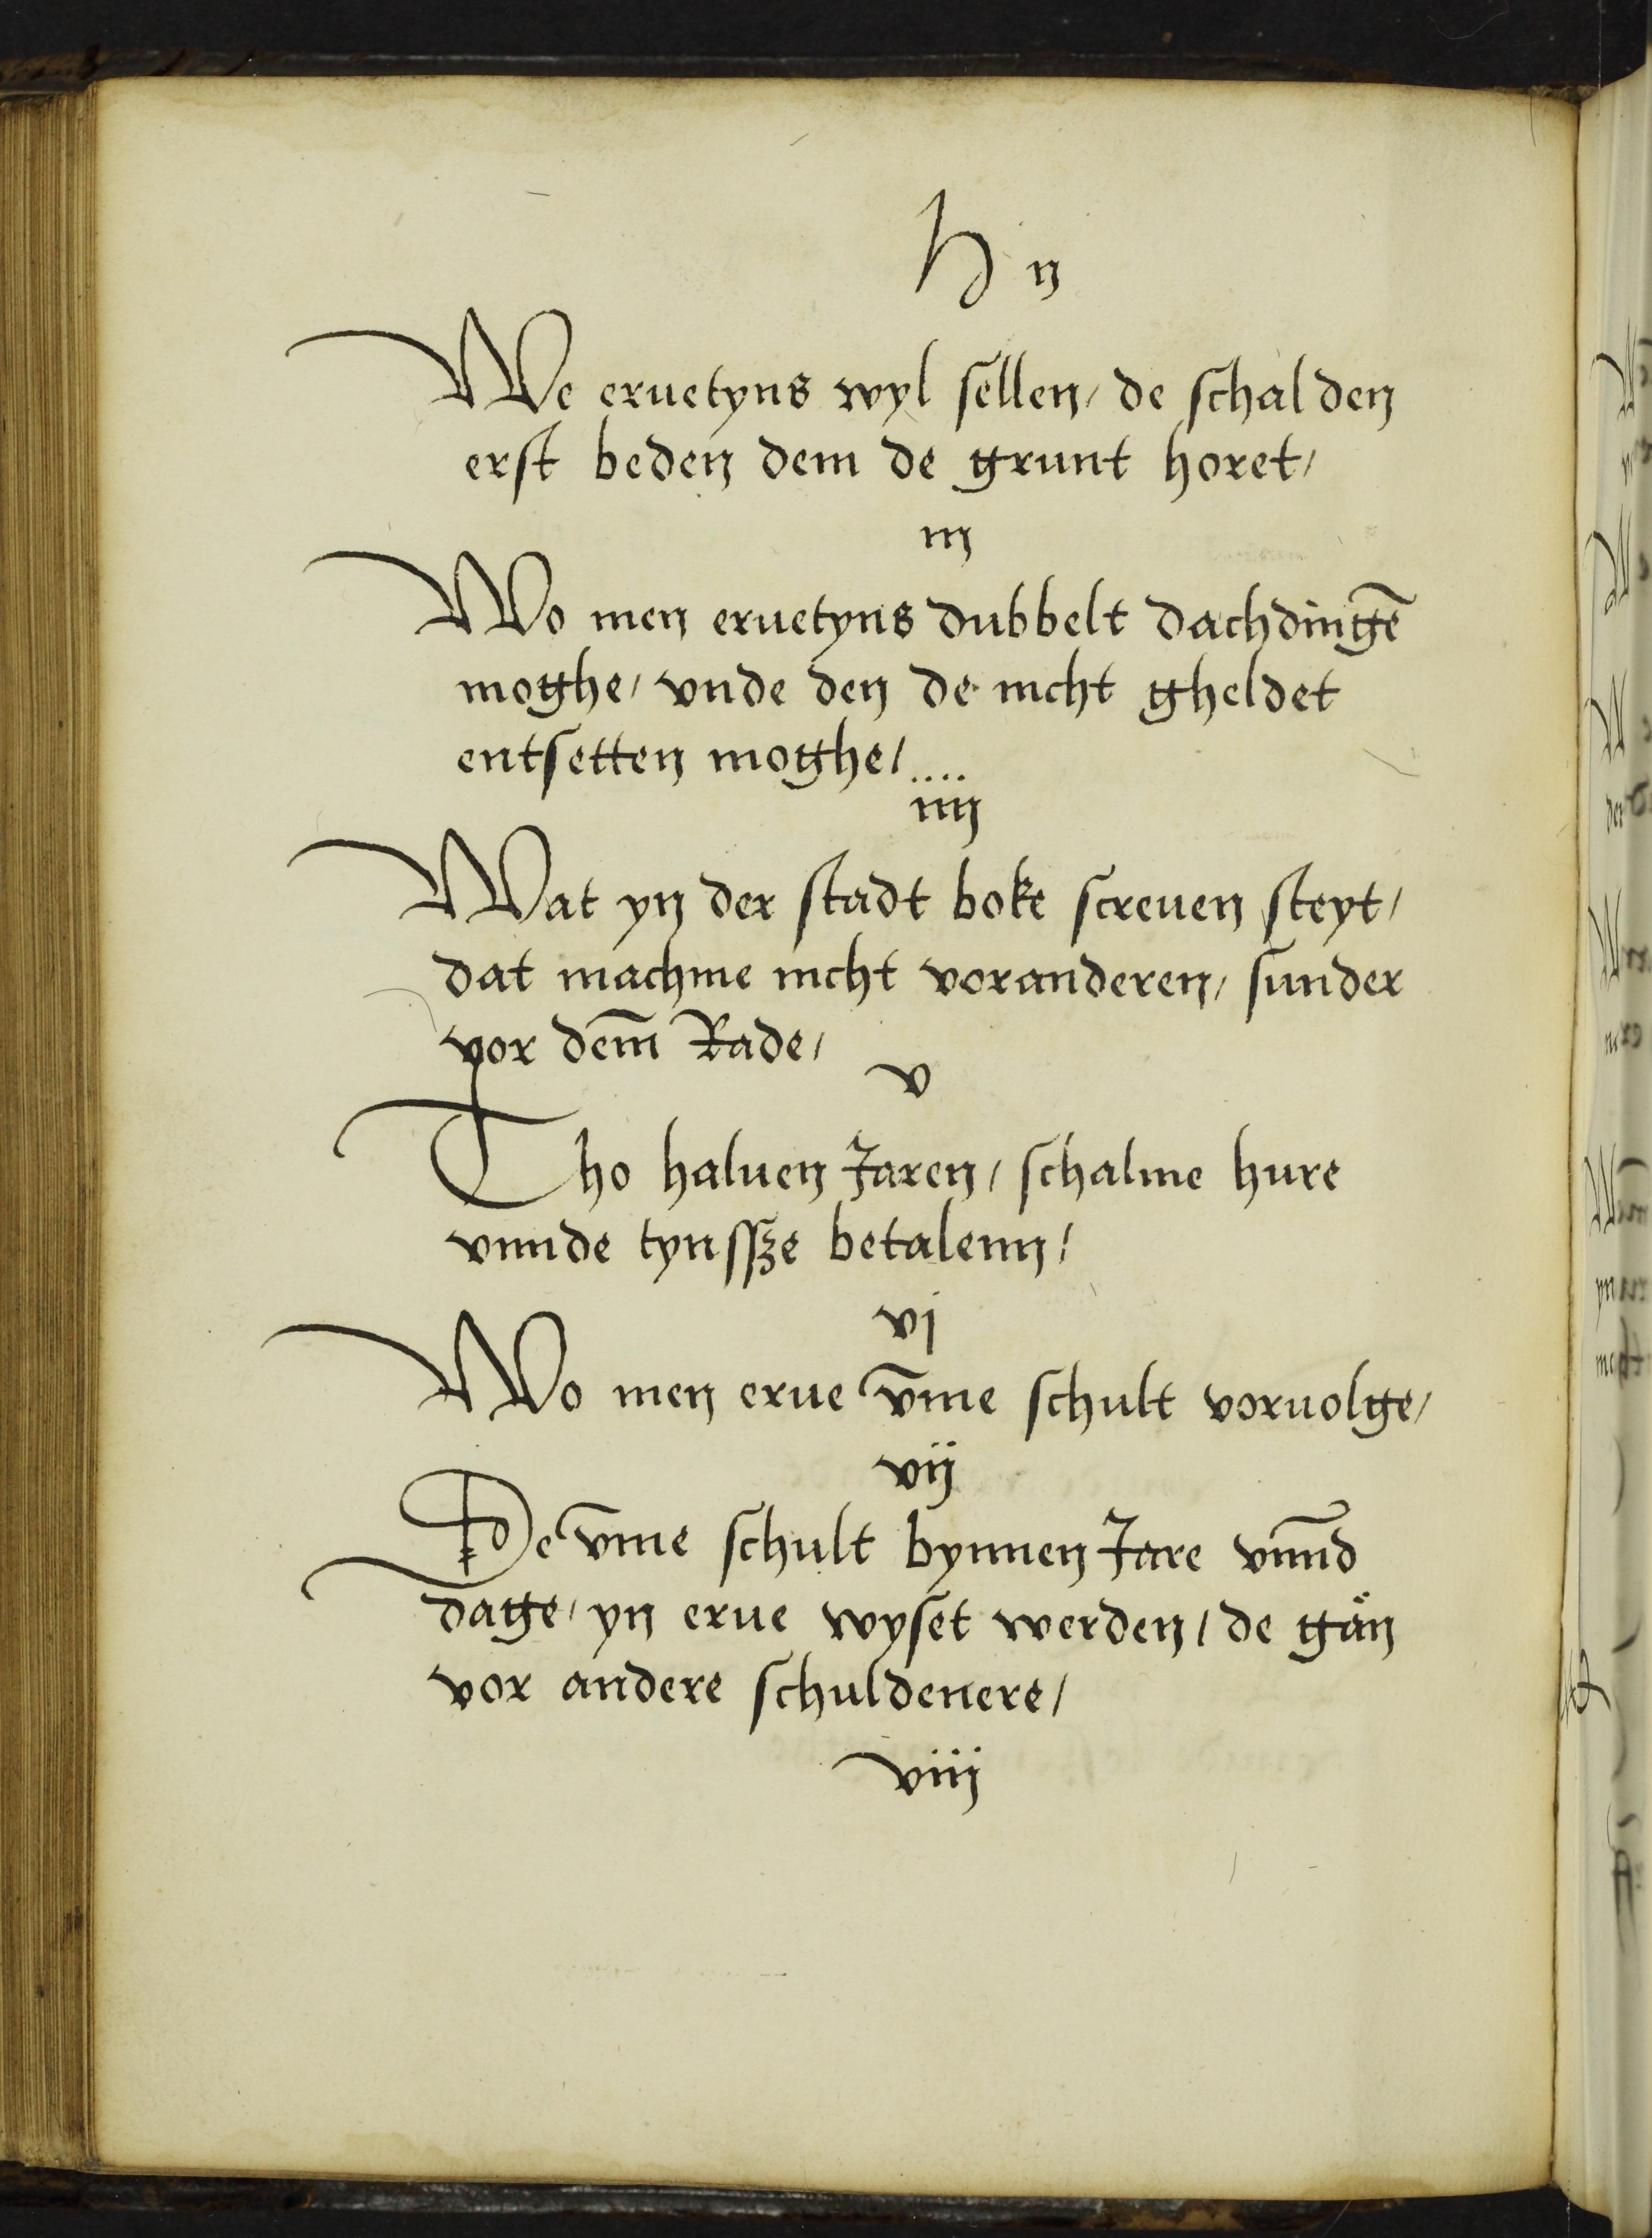 H ij
We eruetyns wyl sellen / de schal den
erst beden dem de grunt horet /
iij
Wo men eruetyns dubbelt dachdingē
moghe / vnde den de nicht gheldet
entsetten moghe /
iiij
Wat yn der stadt boke screuen steyt /
dat machme nicht voranderen / sunder
vor dem̄ Rade /
v
Tho haluen Jaren / schalme hure
vnnde tynssze betalenn /
vj
Wo men erue v̄me schult voruolge /
vij
De v̄me schult bynnen Jare vnnd̄
dage / yn erue wyset werden / de gän
vor andere schuldenere /
viij